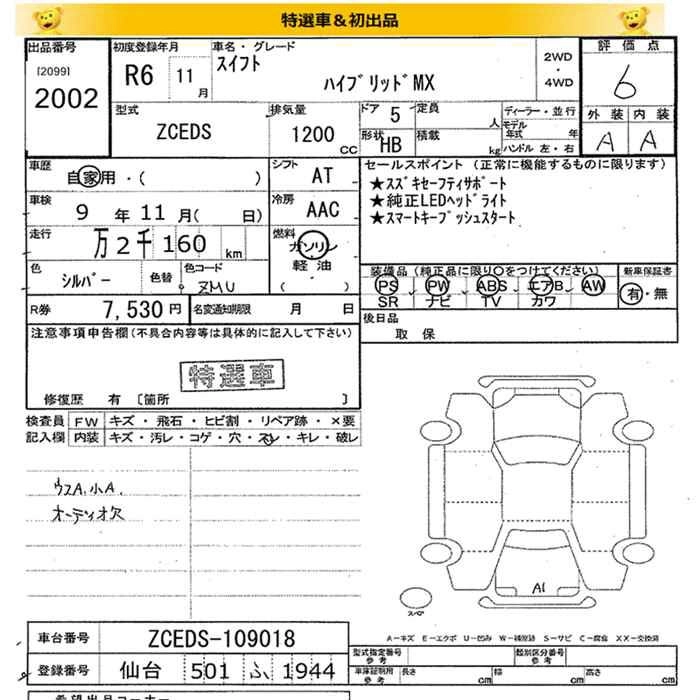 特選車＆初出品
出品番号
[2099]
2002
初度登録年月
R6 11月
車名・グレード
スイフト
ハイブリッドMX
2WD
・
4WD
評価点
6
外装 内装
A A
型式
ZCEDS
排気量
1200 CC
ドア 5
定員 人
形状 HB
積載 kg
ディーラー・並行
モデル年式 年
ハンドル 左・右
車歴
自家用・( )
シフト
AT
車検
9年11月( 日)
冷房
AAC
走行
万2千160 km
燃料
ガソリン
軽油
( )
色
シルバー
色替
色コード
ZMU
R券
7,530円
名変通知期限 月 日
セールスポイント (正常に機能するものに限ります)
★スズキセーフティサポート
★純正LEDヘッドライト
★スマートキープッシュスタート
装備品(純正品に限り○をつけてください)
PS PW ABS エアB AW
SR ナビ TV カワ
新車保証書
有・無
後日品
取保
注意事項申告欄(不具合内容等は具体的に記入して下さい)
特選車
修復歴 有 [箇所 ]
検査員記入欄
FW キズ・飛石・ヒビ割・リペア跡・×要
内装 キズ・汚レ・コゲ・穴・スレ・キレ・破レ
ウスA,小A,
オーディオ欠
A1
スペア
A－キズ E－エクボ U－凹み W－補修跡 S－サビ C－腐食 XX－交換済
車台番号
ZCEDS-109018
登録番号
仙台 501 ふ 1944
型式指定番号
参考
類別区分番号
参考
車庫証明用
参考
長さ cm
幅 cm
高さ cm
希望出品コーナー